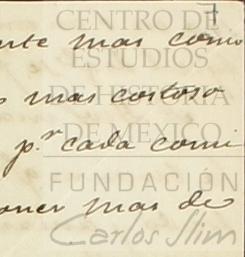 7
CENTRO DE
ESTUDIOS
DE HISTORIA
DE MEXICO
FUNDACIÓN
Carlos Slim
mas como
mas costoso
p.r cada comi
oner mas de